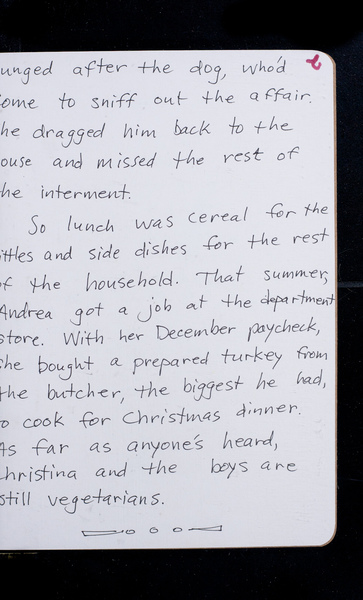 unged after the dog, who'd
ome to sniff out the affair.
he dragged him back to the
ouse and missed the rest of
he interment.
So lunch was cereal for the
ittles and side dishes for the rest
of the household. That summer,
Andrea got a job at the department
store. With her December paycheck,
she bought a prepared turkey from
the butcher, the biggest he had,
to cook for Christmas dinner.
As far as anyone's heard,
Christina and the boys are
still vegetarians.